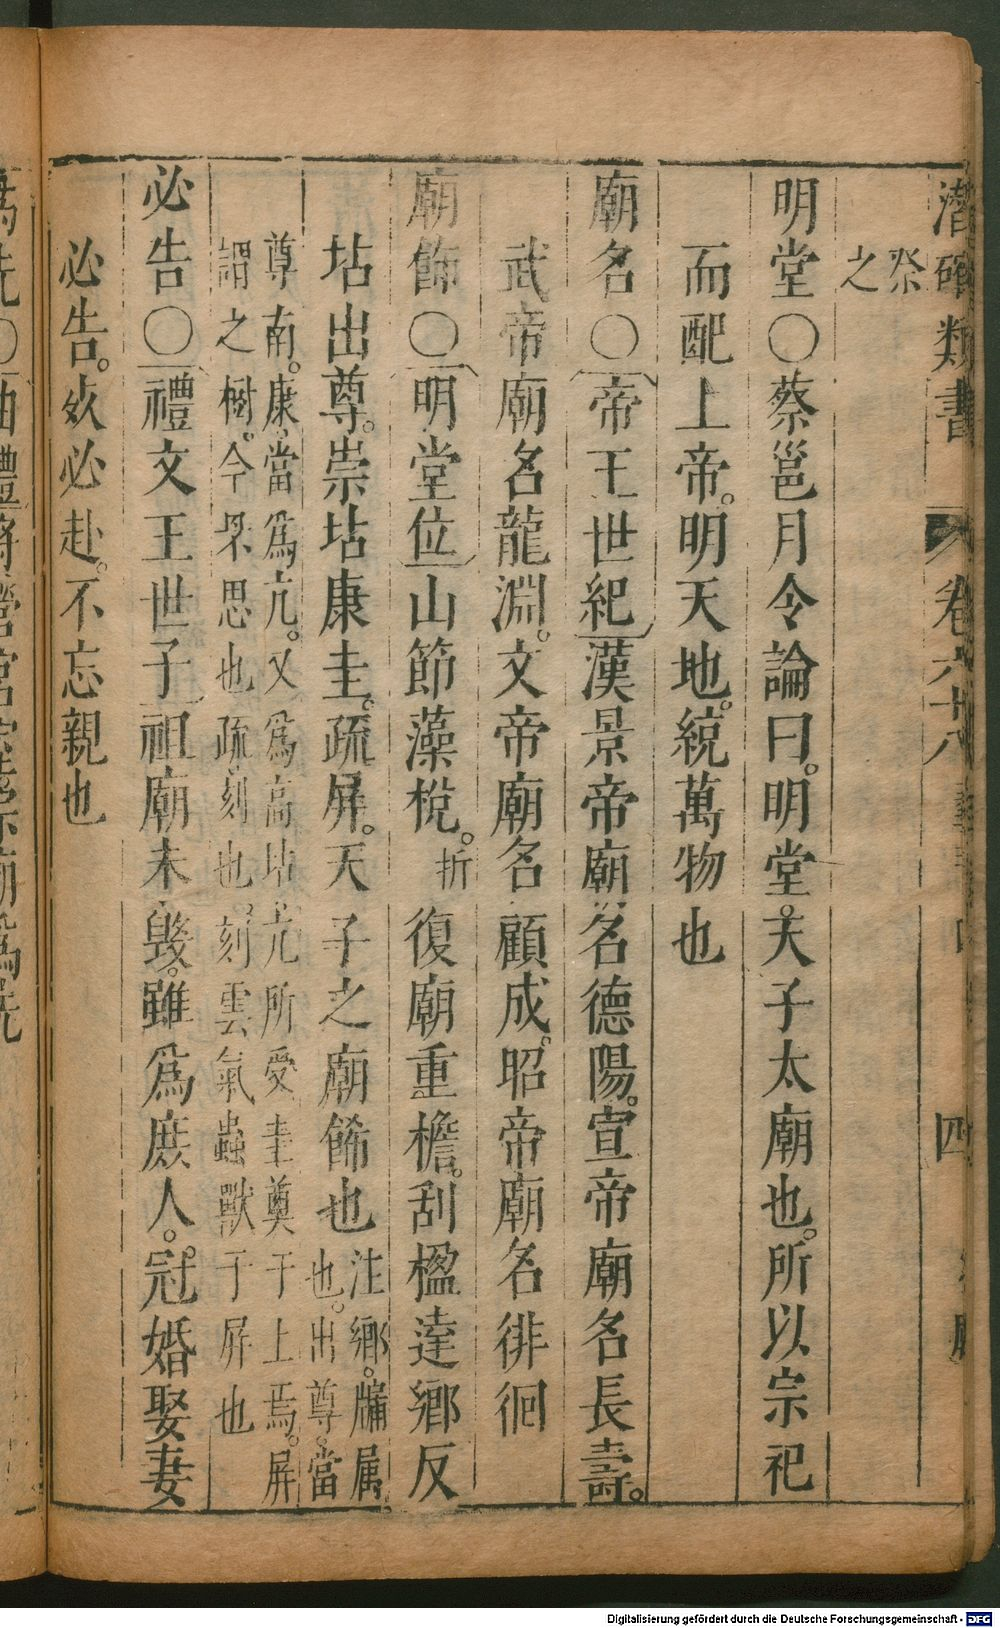 潛確類書 卷六十八 四
祭
之
明堂〇蔡邕月令論曰。明堂。天子太廟也。所以宗祀
而配上帝。明天地。統萬物也
廟名〇帝王世紀漢景帝廟名德陽。宣帝廟名長壽。
武帝廟名龍淵。文帝廟名顧成。昭帝廟名徘徊
廟飾〇明堂位山節藻梲。復廟重檐。刮楹達鄉反
折
坫出尊。崇坫康圭。疏屏。天子之廟飾也
注鄉。牖属。
也。出尊。當
尊南。康。當爲亢。又爲高坫。亢所受圭奠于上焉。屏
謂之樹。今罘思也疏。刻也。刻雲氣蟲獸于屏也
必告〇禮文王世子祖廟未毁。雖爲庶人。冠婚娶妻
必告。必赴。不忘親也
Digitalisierung gefördert durch die Deutsche Forschungsgemeinschaft - DFG